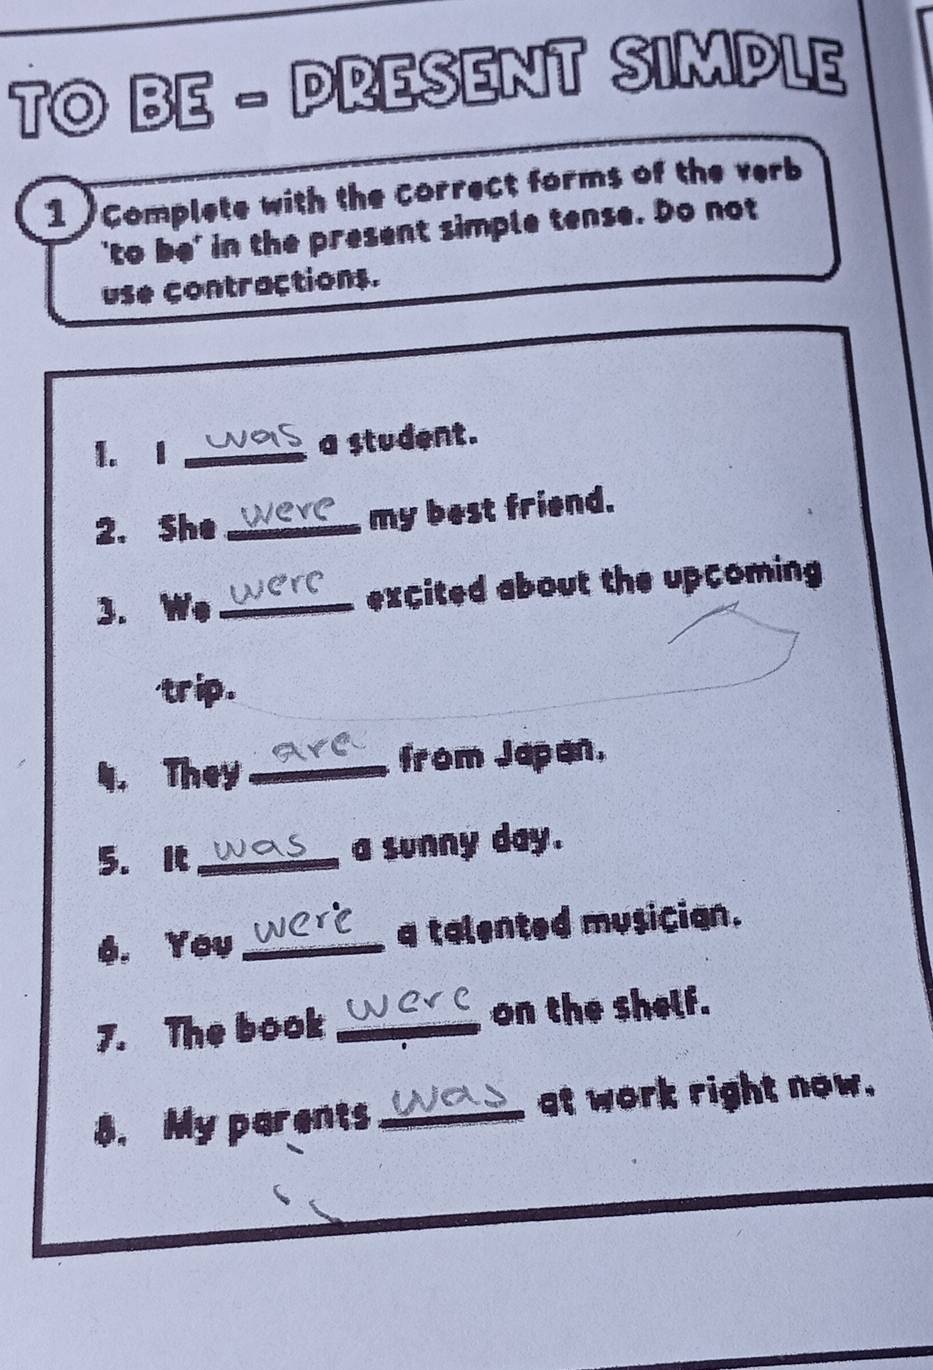 TO BE - PRESENT SIMPLE
1 Complete with the correct forms of the verb
'to be' in the present simple tense. Do not
use contractions.
1. I was a student.
2. She were my best friend.
3. We were excited about the upcoming
trip.
4. They are from Japan.
5. It was a sunny day.
6. You were a talented musician.
7. The book were on the shelf.
8. My parents was at work right now.